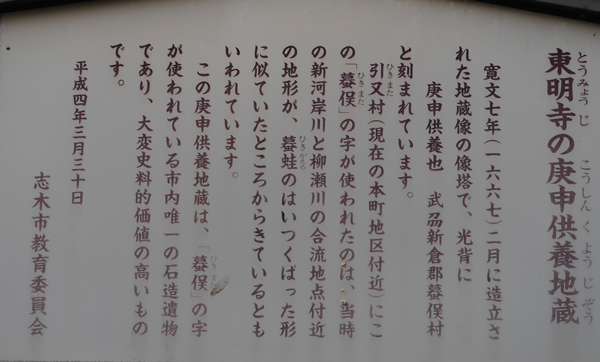 東明寺の庚申供養地蔵
とうみょうじ こうしんくようじぞう
寛文七年(一六六七)二月に造立さ
れた地蔵像の像塔で、光背に
庚申供養也 武刕新倉郡蟇俣村
と刻まれています。
引又村(現在の本町地区付近)にこ
ひきまた
の「蟇俣」の字が使われたのは、当時
ひきまた
の新河岸川と柳瀬川の合流地点付近
の地形が、蟇蛙のはいつくばった形
ひきがえる
に似ていたところからきているとも
いわれています。
この庚申供養地蔵は、「蟇俣」の字
ひきまた
が使われている市内唯一の石造遺物
であり、大変史料的価値の高いもの
です。
平成四年三月三十日
志木市教育委員会